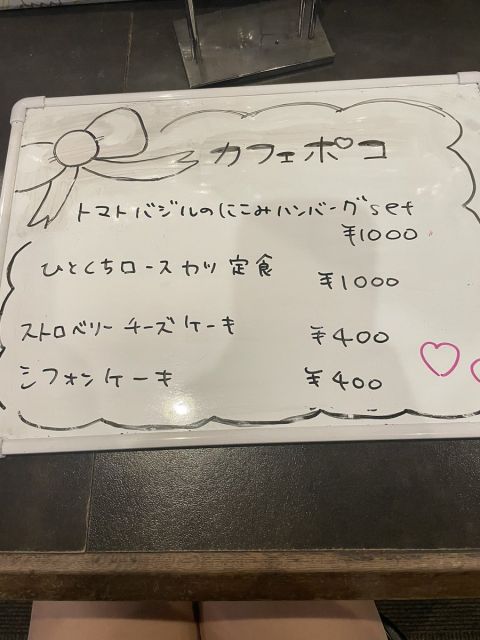 カフェポコ
トマトバジルのにこみハンバーグset
¥1000
ひとくちロースカツ定食 ¥1000
ストロベリーチーズケーキ ¥400
シフォンケーキ ¥400